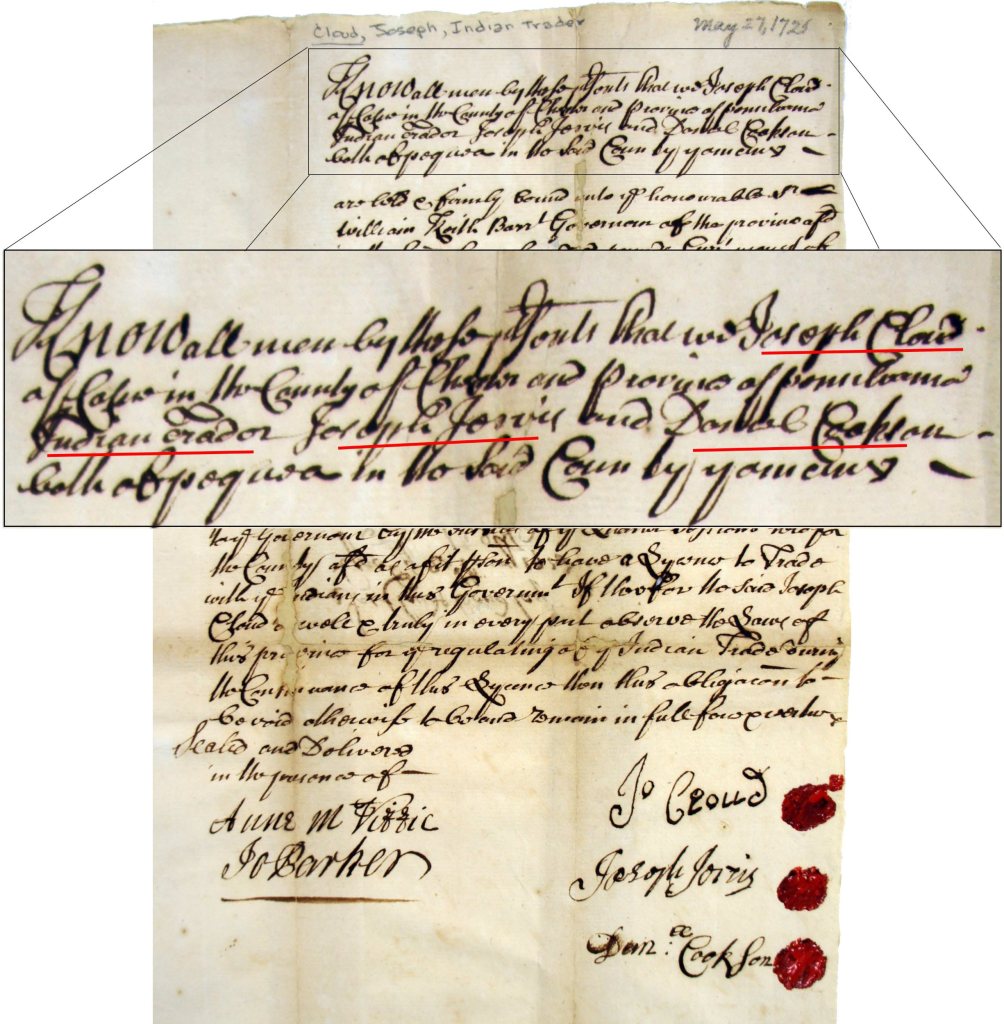 Cloud, Joseph, Indian Trader
May 27, 1725
Know all men by these psents that we Joseph Cloud
of Calne in the County of Chester and Province of pensilvania
Indian Trador Joseph Jervis and Daniel Cookson
both of pequea in the said County yomens
are held & firmly bound unto ye honourable Sr
William Keith Barrt Governour of the province afsd
Know all men by these psents that we Joseph Cloud
of Calne in the County of Chester and Province of pensilvania
Indian Trador Joseph Jervis and Daniel Cookson
both of pequea in the said County yomens
the County afsd as a fit pson to have a Lycence to Trade
with ye Indians in this Governmt If therefor the said Joseph
Cloud well & truly in every part observe the Laws of
this province for ye regulating of ye Indian Trade during
the Continuance of this Lycence then this obligacon to
be void otherwise to be and remain in full force & vertue
Sealed and Delivered
in the presence of
Anne M
Jo Barker
Jo Cloud
Joseph Jervis
Dan: Cookson